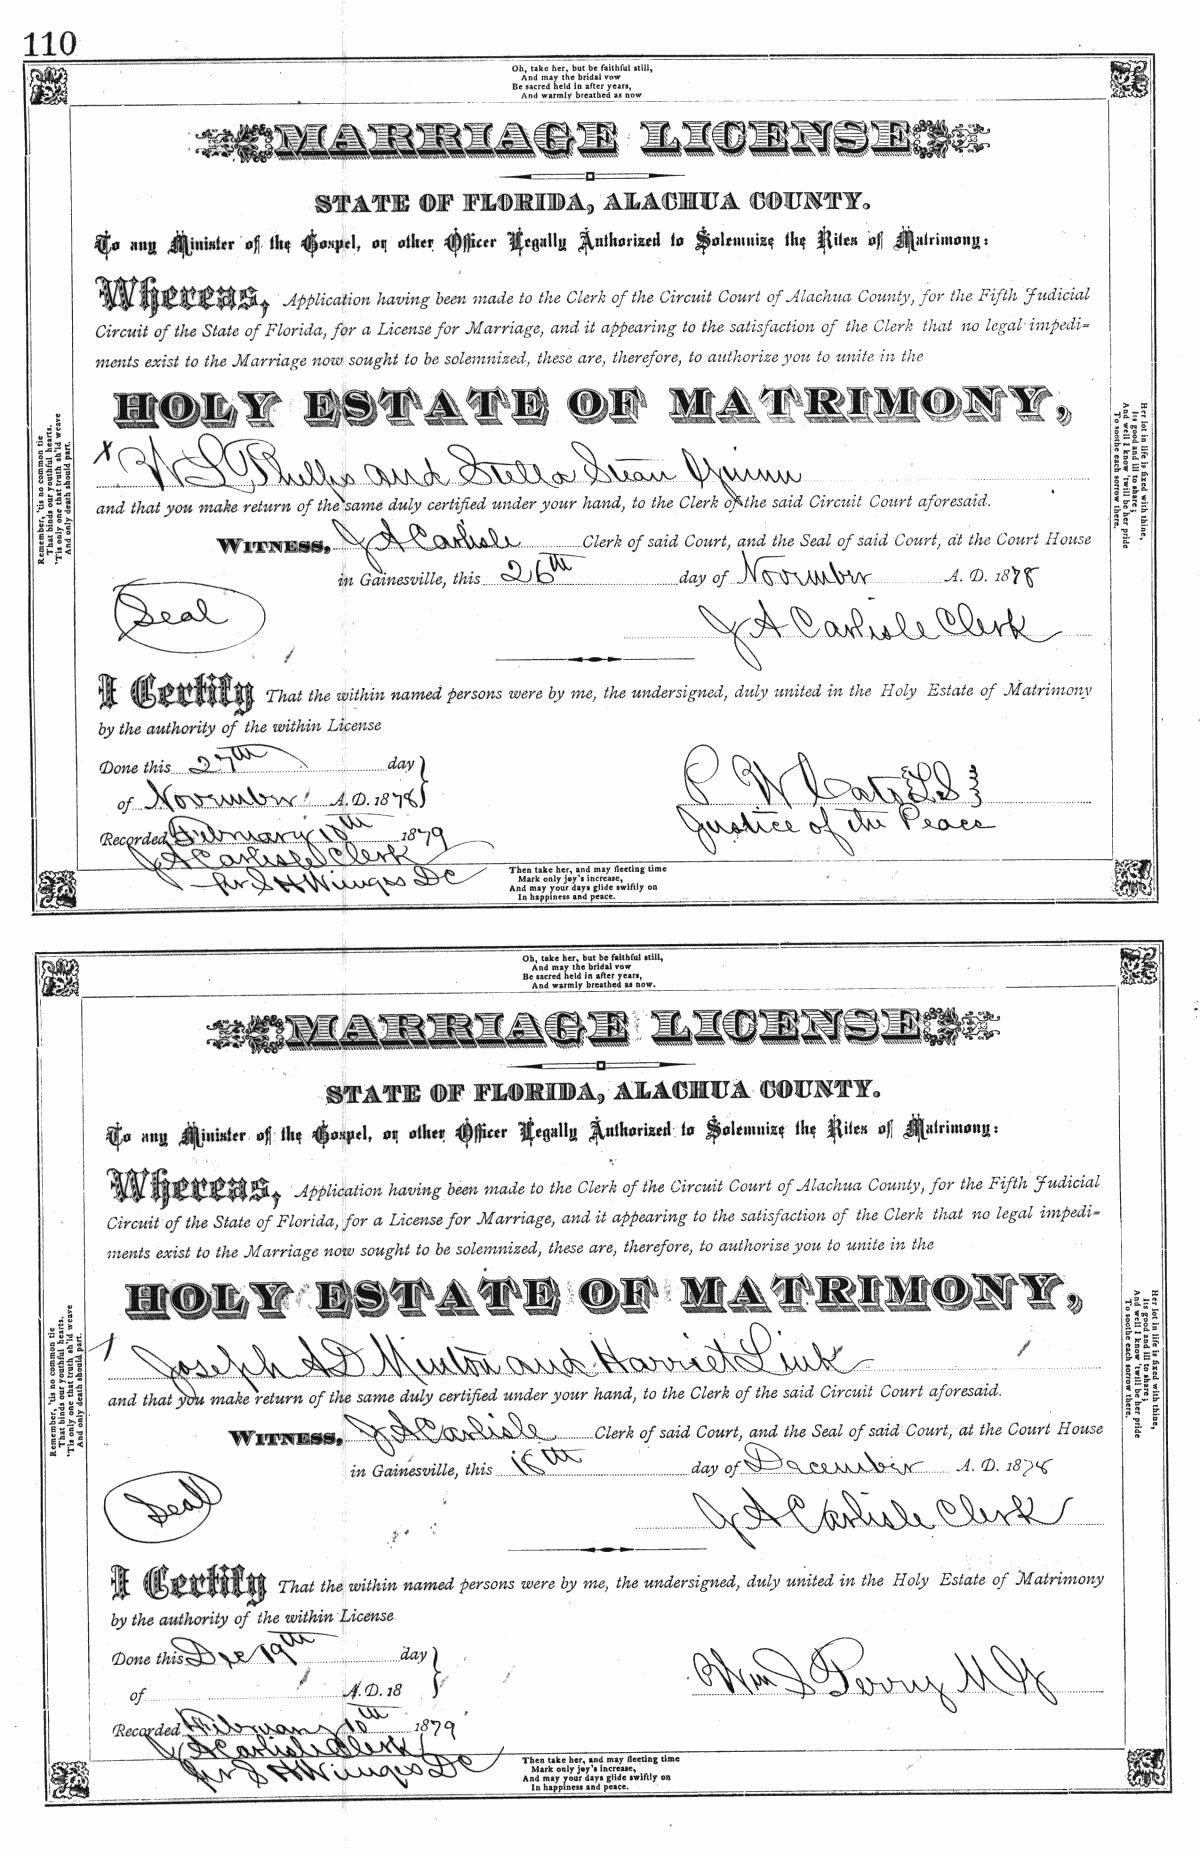 110
Oh, take her, but be faithful still,
And may the bridal vow
Be sacred held in after years,
And warmly breathed as now
MARRIAGE LICENSE
STATE OF FLORIDA, ALACHUA COUNTY.
To any Minister of the Gospel, or other Officer Legally Authorized to Solemnize the Rites of Matrimony:
Whereas, Application having been made to the Clerk of the Circuit Court of Alachua County, for the Fifth Judicial
Circuit of the State of Florida, for a License for Marriage, and it appearing to the satisfaction of the Clerk that no legal impedi=
ments exist to the Marriage now sought to be solemnized, these are, therefore, to authorize you to unite in the
HOLY ESTATE OF MATRIMONY,
X W S Phelps and Stella Quinn
and that you make return of the same duly certified under your hand, to the Clerk of the said Circuit Court aforesaid.
WITNESS, J A Carlisle Clerk of said Court, and the Seal of said Court, at the Court House
in Gainesville, this 26th day of November A. D. 1878
Seal
J A Carlisle Clerk
I Certify That the within named persons were by me, the undersigned, duly united in the Holy Estate of Matrimony
by the authority of the within License
Done this 27th day
of November A. D. 1878
P W Cato L.S
Justice of the Peace
Recorded February 10th 1879
J A Carlisle Clerk
pr S H Wienges DC
Then take her, and may fleeting time
Mark only joy's increase,
And may your days glide swiftly on
In happiness and peace.
Remember, 'tis no common tie
That binds our youthful hearts.
'Tis only one that truth sh'ld weave
And only death should part.
Her lot in life is fixed with thine,
Its good and ill to share;
And well I know 'twill be her pride
To soothe each sorrow there.
Oh, take her, but be faithful still,
And may the bridal vow
Be sacred held in after years,
And warmly breathed as now.
MARRIAGE LICENSE
STATE OF FLORIDA, ALACHUA COUNTY.
To any Minister of the Gospel, or other Officer Legally Authorized to Solemnize the Rites of Matrimony:
Whereas, Application having been made to the Clerk of the Circuit Court of Alachua County, for the Fifth Judicial
Circuit of the State of Florida, for a License for Marriage, and it appearing to the satisfaction of the Clerk that no legal impedi=
ments exist to the Marriage now sought to be solemnized, these are, therefore, to authorize you to unite in the
HOLY ESTATE OF MATRIMONY,
Joseph A D Minton and Harriet Link
and that you make return of the same duly certified under your hand, to the Clerk of the said Circuit Court aforesaid.
WITNESS, J A Carlisle Clerk of said Court, and the Seal of said Court, at the Court House
in Gainesville, this 18th day of December A. D. 1878
Seal
J A Carlisle Clerk
I Certify That the within named persons were by me, the undersigned, duly united in the Holy Estate of Matrimony
by the authority of the within License
Done this Dec 19th day
of A. D. 18
Wm S Perry M G
Recorded February 10th 1879
J A Carlisle Clerk
pr S H Wienges DC
Then take her, and may fleeting time
Mark only joy's increase,
And may your days glide swiftly on
In happiness and peace.
Remember, 'tis no common tie
That binds our youthful hearts.
'Tis only one that truth sh'ld weave
And only death should part.
Her lot in life is fixed with thine,
Its good and ill to share;
And well I know 'twill be her pride
To soothe each sorrow there.